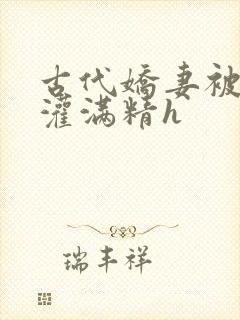 古代嬌妻被
灌满精h
瑞丰祥